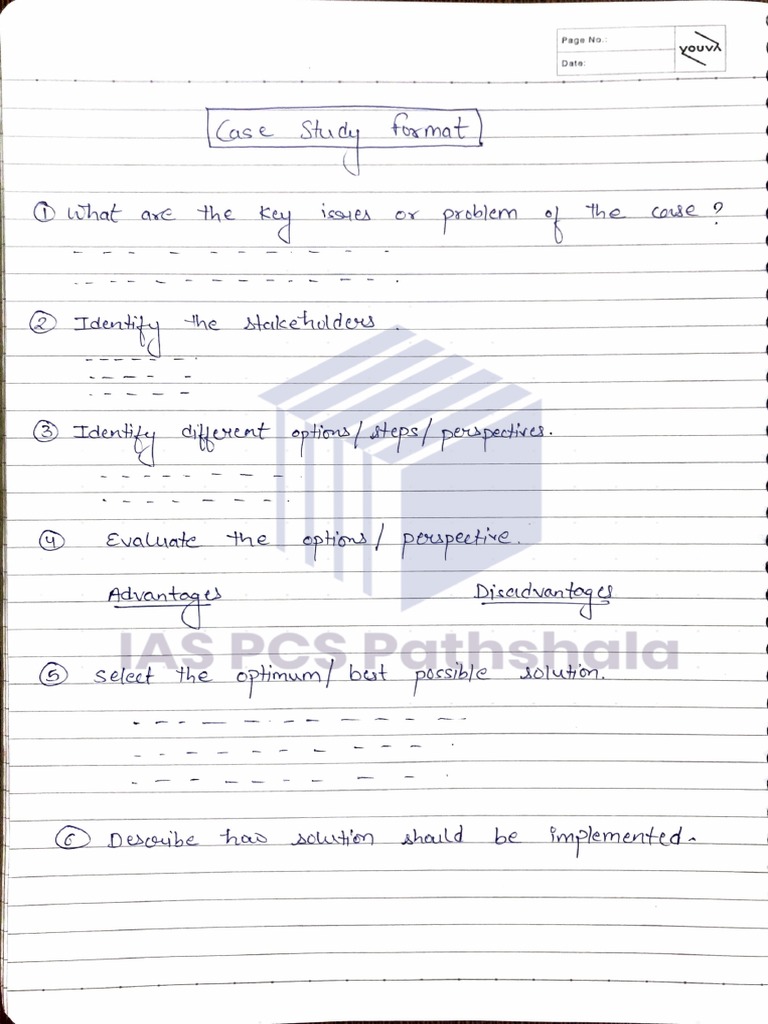 Page No.:
Date:
youva
Case Study Format
① What are the key issues or problem of the case ?
② Identify the stakeholders.
③ Identify different options/steps/perspectives.
④ Evaluate the options/ perspective.
Advantages Disadvantages
IAS PCS Pathshala
⑤ Select the optimum/ best possible solution.
⑥ Describe how solution should be implemented.